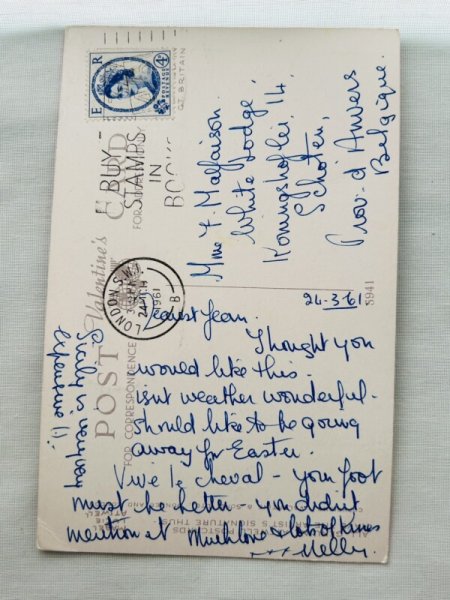 E R
POSTAGE REVENUE
4D
GT BRITAIN
BUY
STAMPS
IN
BOOKS
LONDON S.W.1
24 MCH
1961
B
Valentine's
POST CARD
FOR CORRESPONDENCE
FOR
Mme F. Malfaison.
White Lodge,
Koningshoflei, 14,
Schoten,
Prov. d'Anvers
Belgique.
24.3.61
5941
Dearest Jean.
Thought you
would like this.
isnt weather wonderful.
Should like to be going
away for Easter.
Vive le cheval - your foot
must be better - you didn't
mention it Much love & lots of kisses
xxx Nelly.
Sicily is very very
expensive !!.
ATTWELL
ARTIST'S SIGNATURE THUS